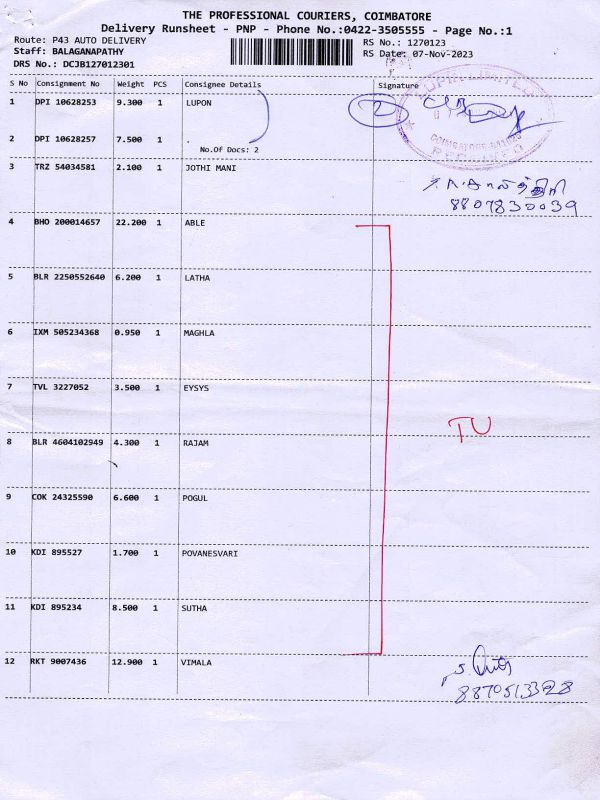 THE PROFESSIONAL COURIERS, COIMBATORE
Delivery Runsheet - PNP - Phone No.:0422-3505555 - Page No.:1
Route: P43 AUTO DELIVERY
RS No.: 1270123
Staff: BALAGANAPATHY
RS Date: 07-Nov-2023
DRS No.: DCJB127012301
S No Consignment No Weight PCS Consignee Details Signature
1 DPI 10628253 9.300 1 LUPON
2
2 DPI 10628257 7.500 1 .
No.Of Docs: 2
COIMBATORE
RECEIVED
3 TRZ 54034581 2.100 1 JOTHI MANI
8807830039
4 BHO 200014657 22.200 1 ABLE
5 BLR 2250552640 6.200 1 LATHA
6 IXM 505234368 0.950 1 MAGHLA
7 TVL 3227052 3.500 1 EYSYS
TU
8 BLR 4604102949 4.300 1 RAJAM
9 COK 24325590 6.600 1 POGUL
10 KDI 895527 1.700 1 POVANESVARI
11 KDI 895234 8.500 1 SUTHA
12 RKT 9007436 12.900 1 VIMALA
8870513328